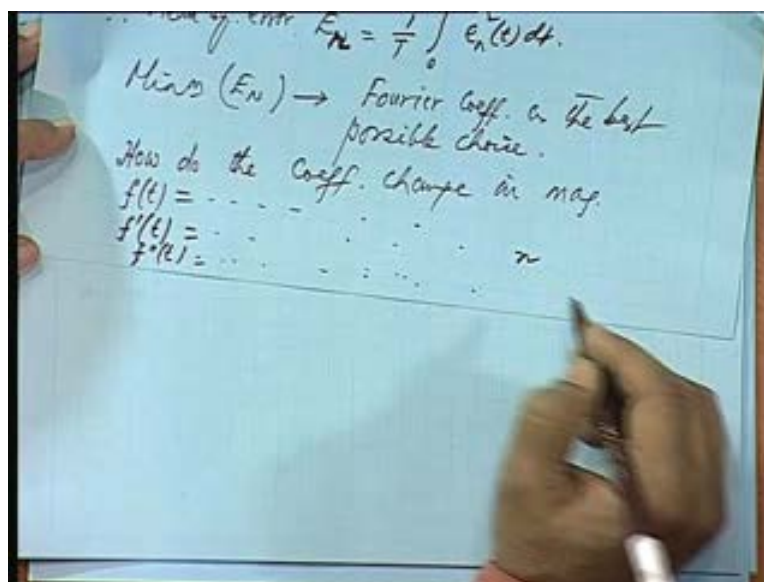 ∴ Mean sq. error E_n = 1/T ∫_0 ε_n²(t) dt.
(E_N) → Fourier Coeff. is the best
possible choice.
How do the Coeff. change in mag.
f(t) = . . . . . . .
f'(t) = . . . . . n
f"(t) = . . . . . . . .